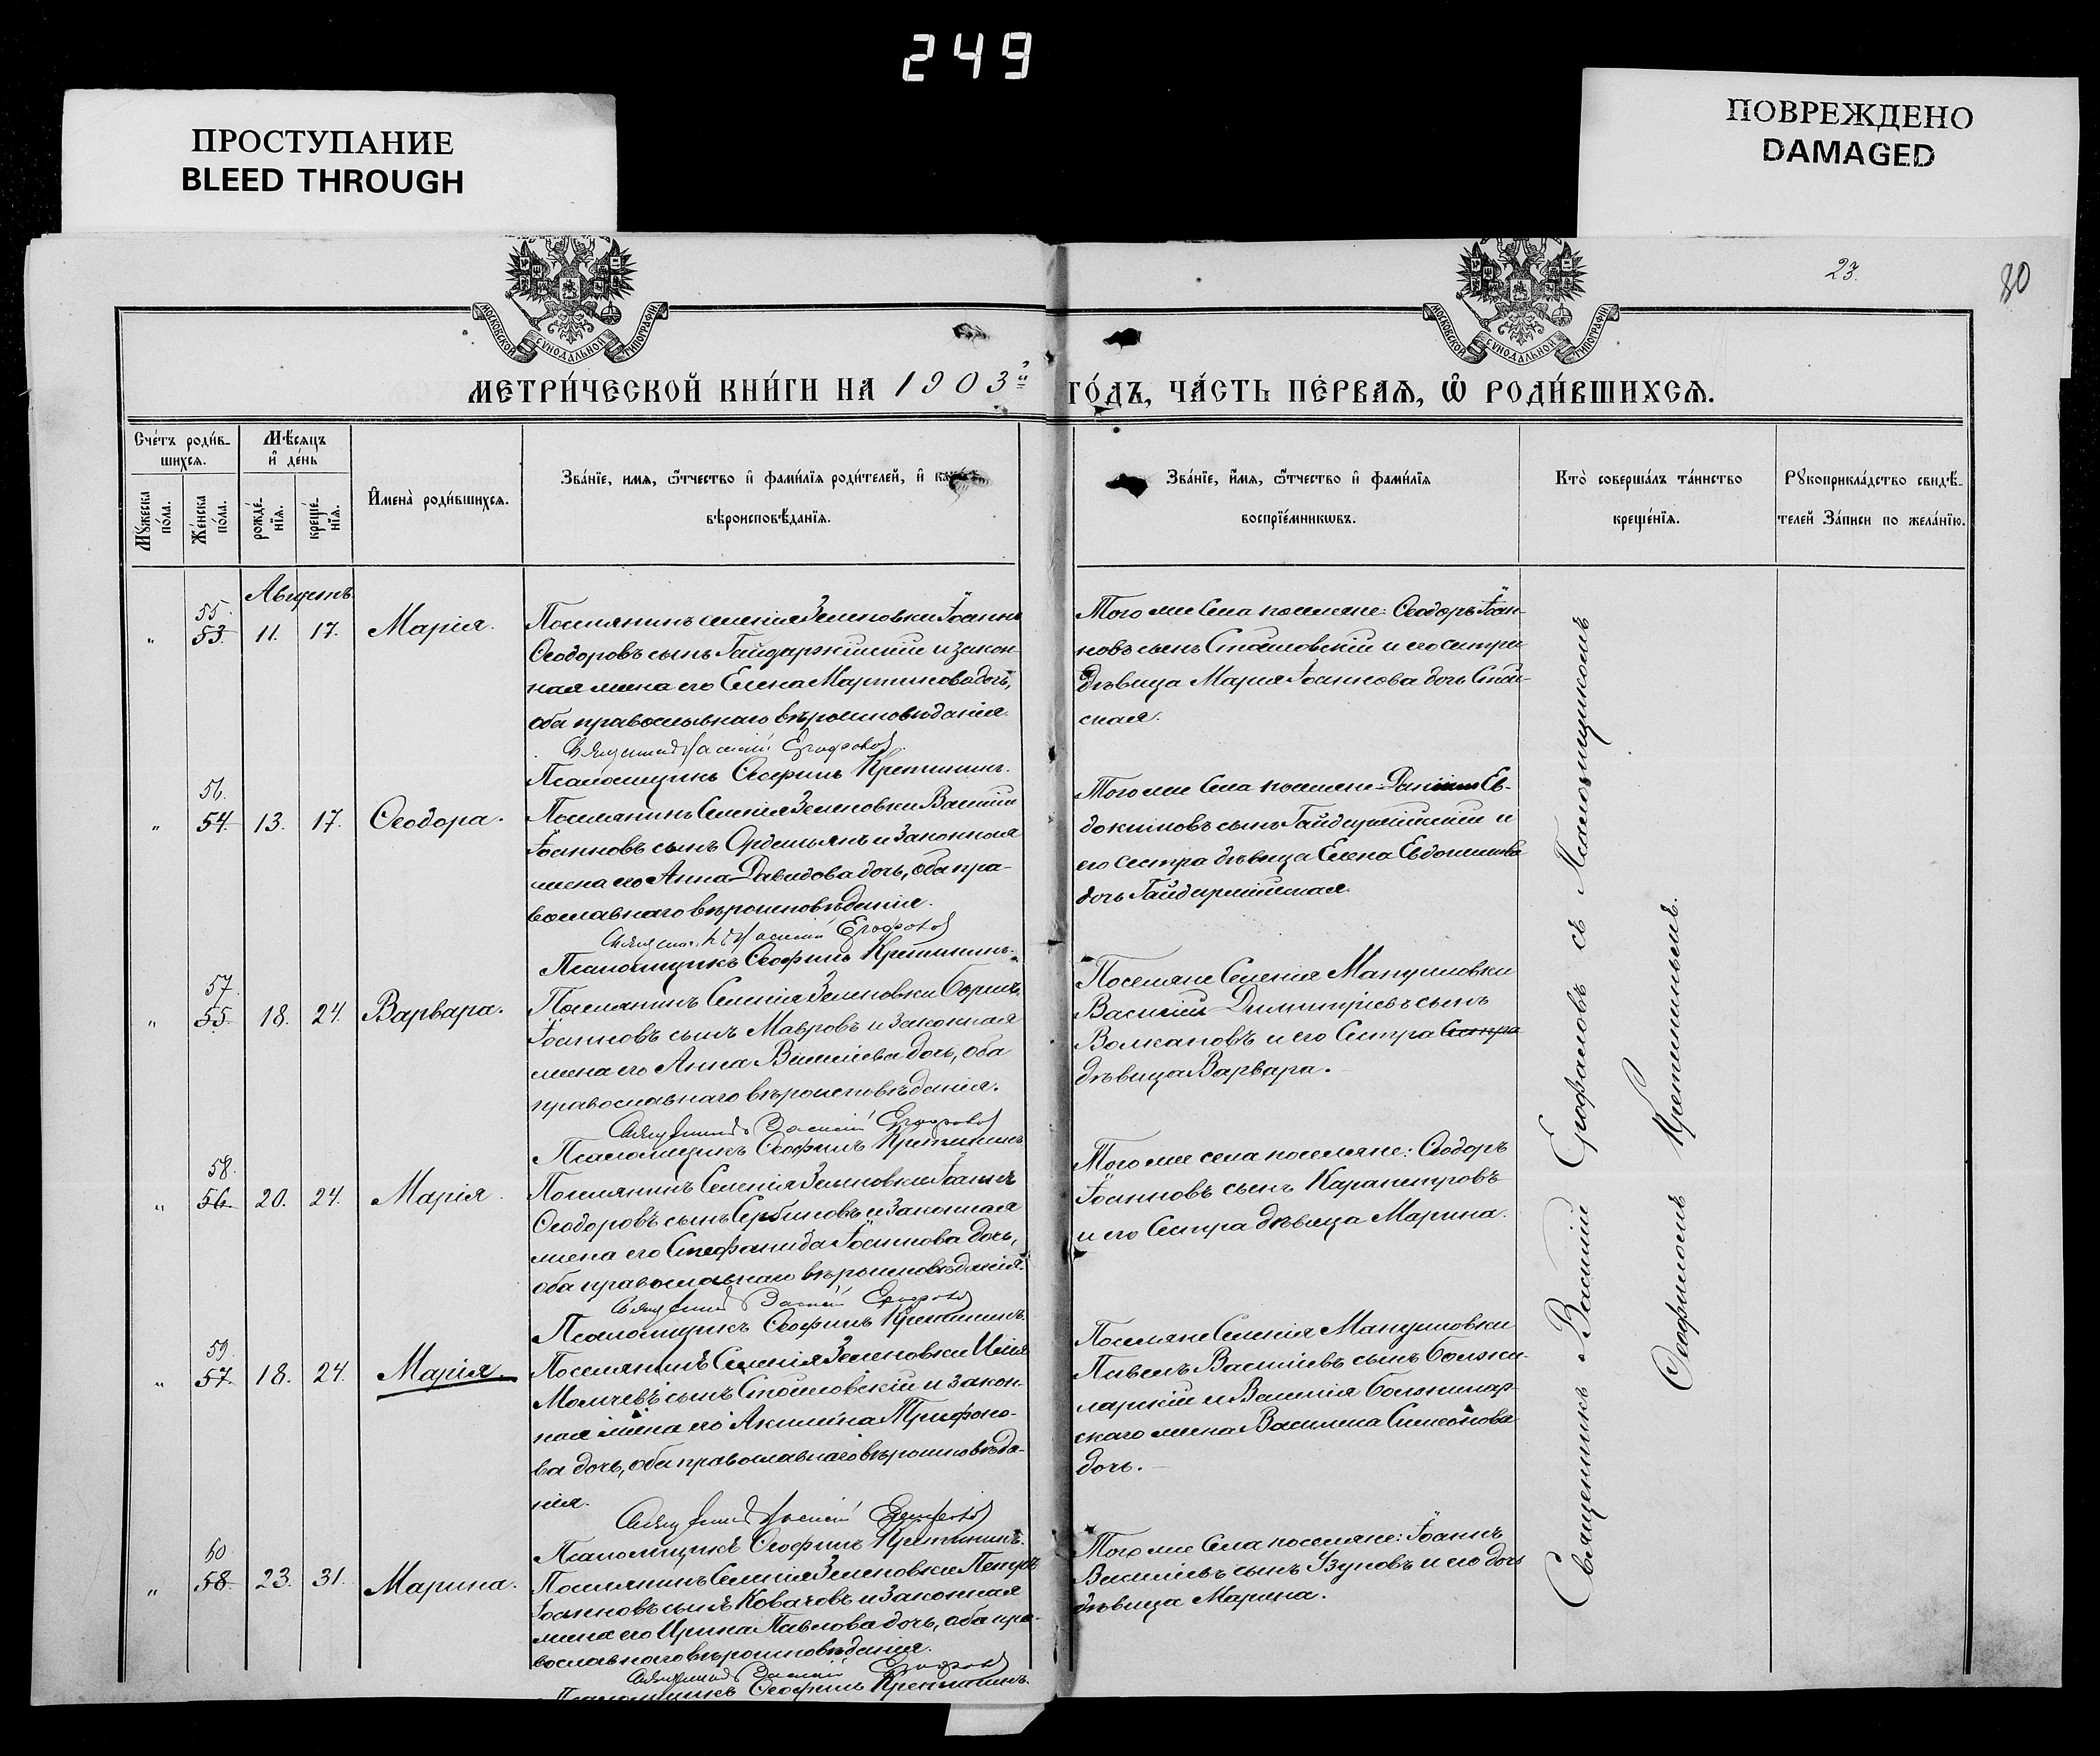 249
ПРОСТУПАНИЕ
BLEED THROUGH
ПОВРЕЖДЕНО
DAMAGED
МОСКОВСКОЙ СѴНОДАЛЬНОЙ ТИПОГРАФІИ
МОСКОВСКОЙ СѴНОДАЛЬНОЙ ТИПОГРАФІИ
23.
80
МЕТРИ́ЧЕСКОЙ КНИ́ГИ НА 1903й ГО́ДЪ, ЧА́СТЬ ПЕ́РВАѦ, Ѡ РОДИ́ВШИХСѦ.
Сче́тъ роди́в-
шихсѧ.
Мѣ́сѧцъ
и҆ де́нь
Мꙋ́жеска
по́ла.
Же́нска
по́ла.
рожде́-
нїѧ.
креще́-
нїѧ.
И҆мена̀ роди́вшихсѧ.
Зва́нїе, имѧ, ѻ҆́тчество и҆ фами́лїѧ роди́телей, и҆
вѣроисповѣ́данїѧ.
Зва́нїе, и҆́мѧ, ѻ҆́тчество и҆ фами́лїѧ
воспрїе́мникѡвъ.
Кто̀ соверша́лъ та́инство
креще́нїѧ.
Рꙋкоприкла́дство свидѣ́-
телей за́писи по жела́нїю.
Августъ
55.
„ 53. 11. 17. Марія.
Поселянинъ селенія Зеленовки Іоаннъ
Ѳеодоровъ сынъ Гайдаржійскій и закон-
ная жена его Елена Мартинова дочь,
оба православнаго вѣроисповѣданія.
Священникъ Василій Ерофаловъ
Псаломщикъ Ѳеофилъ Крепкинъ.
Того же Села поселяне: Ѳеодоръ Іоан-
новъ сынъ Стойловскій и его сестра
дѣвица Марія Іоаннова дочь Стой-
ская.
56.
„ 54. 13. 17. Ѳеодора.
Поселянинъ Селенія Зеленовки Василій
Іоанновъ сынъ и Законная
жена его Анна Давидова дочь, оба пра-
вославнаго вѣроисповѣданія.
Священникъ Василій Ерофаловъ
Псаломщикъ Ѳеофилъ
Того же Села поселяне Ев-
докимовъ сынъ Гайдаржійскій и
его сестра дѣвица Елена Евдокимова
дочь Гайдаржійская.
57.
„ 55. 18. 24. Варвара.
Поселянинъ Селенія Зеленовки Борисъ
Іоанновъ сынъ Мавровъ и Законная
жена его Анна Василіева дочь, оба
православнаго вѣроисповѣданія.
Священникъ Василій Ерофаловъ
Псаломщикъ Ѳеофилъ
Поселяне Селенія Мануиловки
Василій Димитріевъ сынъ
Волкановъ и его Сестра Сестра
дѣвица Варвара.
58.
„ 56. 20. 24. Марія.
Поселянинъ Селенія Зеленовки Іоаннъ
Ѳеодоровъ сынъ Сербиновъ и Законная
жена его Стефанида Іоаннова дочь,
оба православнаго вѣроисповѣданія.
Священникъ Василій Ерофаловъ
Псаломщикъ Ѳеофилъ
Того же села поселяне: Ѳеодоръ
Іоанновъ сынъ Карапетровъ
и его Сестра дѣвица Марина.
59.
„ 57. 18. 24. Марія.
Поселянинъ Селенія Зеленовки Илія
сынъ Стойловскій и закон-
ная жена его Акилина Трифоно-
ва дочь, оба православнаго вѣроисповѣда-
нія.
Священникъ Василій Ерофаловъ
Псаломщикъ Ѳеофилъ
Поселяне Селенія Мануиловки
Павелъ Василіевъ сынъ Болжи-
ларскій и Василія Болжилар-
скаго жена Василиса Симеонова
дочь.
60
„ 58. 23. 31. Марина.
Поселянинъ Селенія Зеленовки Петръ
Іоанновъ сынъ Ковачовъ и Законная
жена его Ирина Павлова дочь, оба пра-
вославнаго вѣроисповѣданія.
Священникъ Василій Ерофаловъ
Псаломщикъ Ѳеофилъ
Того же Села поселяне: Іоаннъ
Василіевъ сынъ Узуновъ и его дочь
дѣвица Марина.
Священникъ Василій Ерофаловъ съ Псаломщикомъ
Ѳеофиломъ